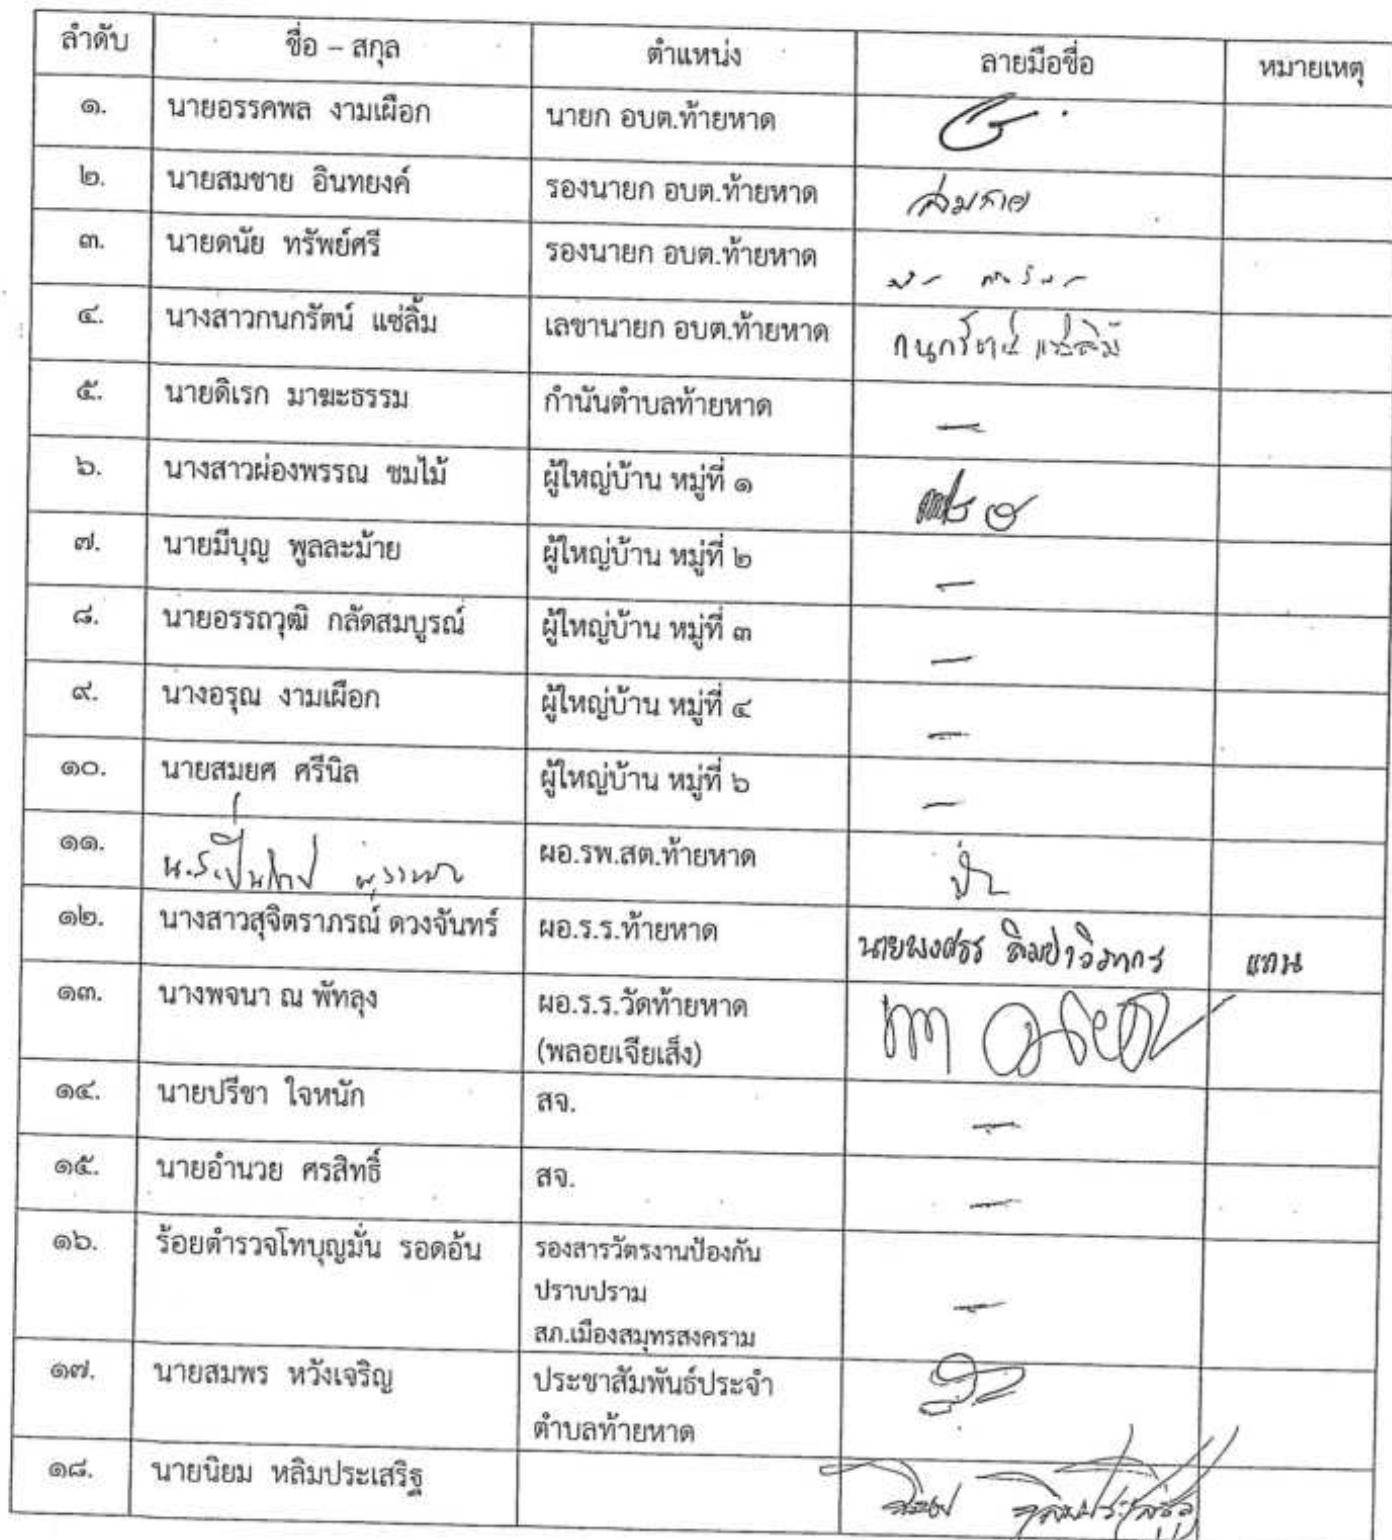 ลำดับ ชื่อ – สกุล ตำแหน่ง ลายมือชื่อ หมายเหตุ
๑. นายอรรคพล งามเผือก นายก อบต.ท้ายหาด
๒. นายสมชาย อินทยงค์ รองนายก อบต.ท้ายหาด สมชาย
๓. นายดนัย ทรัพย์ศรี รองนายก อบต.ท้ายหาด
๔. นางสาวกนกรัตน์ แซ่ลิ้ม เลขานายก อบต.ท้ายหาด กนกรัตน์ แซ่ลิ้ม
๕. นายดิเรก มาฆะธรรม กำนันตำบลท้ายหาด —
๖. นางสาวผ่องพรรณ ชมไม้ ผู้ใหญ่บ้าน หมู่ที่ ๑
๗. นายมีบุญ พูลละม้าย ผู้ใหญ่บ้าน หมู่ที่ ๒ —
๘. นายอรรถวุฒิ กลัดสมบูรณ์ ผู้ใหญ่บ้าน หมู่ที่ ๓ —
๙. นางอรุณ งามเผือก ผู้ใหญ่บ้าน หมู่ที่ ๔ —
๑๐. นายสมยศ ศรีนิล ผู้ใหญ่บ้าน หมู่ที่ ๖ —
๑๑. ผอ.รพ.สต.ท้ายหาด
๑๒. นางสาวสุจิตราภรณ์ ดวงจันทร์ ผอ.ร.ร.ท้ายหาด นายพงศธร แทน
๑๓. นางพจนา ณ พัทลุง ผอ.ร.ร.วัดท้ายหาด
(พลอยเจียเส็ง)
๑๔. นายปรีชา ใจหนัก สจ. —
๑๕. นายอำนวย ศรสิทธิ์ สจ. —
๑๖. ร้อยตำรวจโทบุญมั่น รอดอ้น รองสารวัตรงานป้องกัน
ปราบปราม —
สภ.เมืองสมุทรสงคราม
๑๗. นายสมพร หวังเจริญ ประชาสัมพันธ์ประจำ
ตำบลท้ายหาด
๑๘. นายนิยม หลิมประเสริฐ